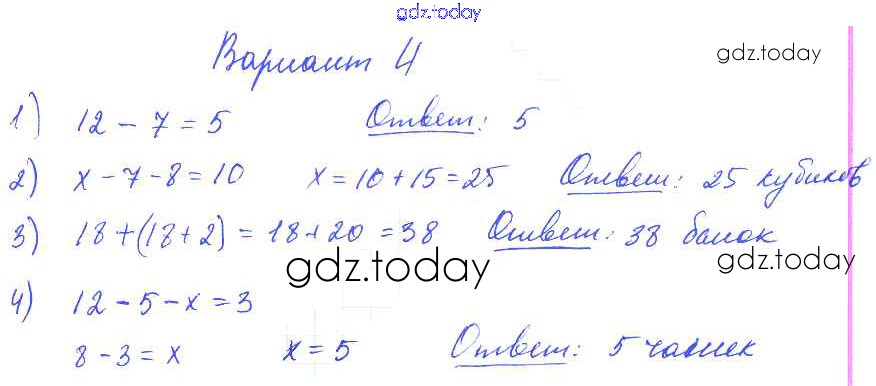 gdz.today
Вариант 4
gdz.today
1) 12 - 7 = 5 Ответ: 5
2) x - 7 - 8 = 10 x = 10 + 15 = 25 Ответ: 25 кубиков
3) 18 + (18 + 2) = 18 + 20 = 38 Ответ: 38 банок
gdz.today
gdz.today
4) 12 - 5 - x = 3
8 - 3 = x x = 5 Ответ: 5 чашек
gdz.today